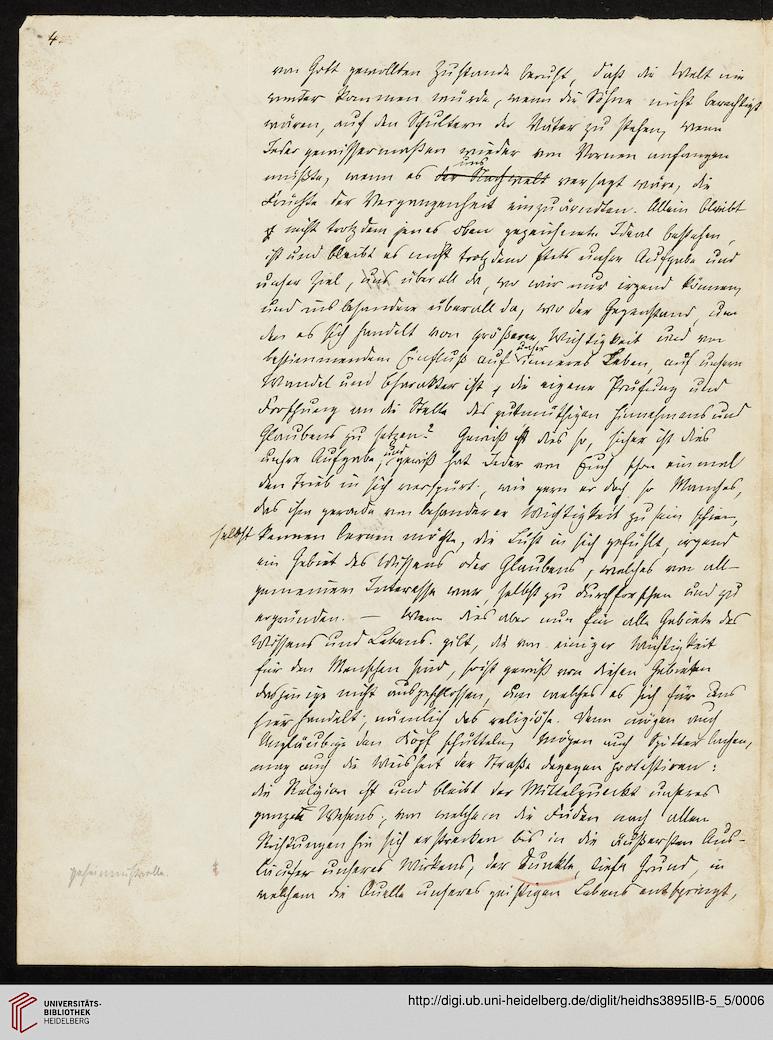 4.
von Gott gewollten Zustande beruht, daß die Welt nie
weiter kommen würde, wenn die Söhne nicht berechtigt
wären, auf den Schultern der Väter zu stehen, wenn
Jeder gewissermaßen wieder von Vornen anfangen
uns
müßte, wenn es der Nachwelt versagt wäre, die
Früchte der Vergangenheit einzuärndten. Allein bleibt
nicht trotzdem jenes oben gezeichnete Ideal bestehen,
ist und bleibt es nicht trotzdem stets unsere Aufgabe und
unser Ziel, uns überall da, wo wir nur irgend können,
und insbesondere überall da, wo der Gegenstand, um
den es sich handelt von größerer Wichtigkeit und von
unser
bestimmendem Einfluß auf inneres Leben, auf unsern
Wandel und Charakter ist, die eigene Prüfung und
Forschung an die Stelle des gutmüthigen Hinnehmens und
Glaubens zu setzen? Gewiß ist dies so, sicher ist dies
und
unsre Aufgabe, gewiß hat Jeder von Euch schon einmal
den Trieb in sich verspürt, wie gern er doch so Manches,
das ihm gerade von besonderer Wichtigkeit zu sein schien,
selbst kennen lernen möchte, die Lust in sich gefühlt, irgend
ein Gebiet des Wissens oder Glaubens, welches von all-
gemeinem Interesse war, selbst zu durchforschen und zu
ergründen. — Wenn dies aber nun für alle Gebiete des
Wissens und Lebens gilt, die von einiger Wichtigkeit
für den Menschen sind, so ist gewiß von diesen Gebieten
dasjenige nicht ausgeschlossen, um welches es sich für uns
hier handelt; nämlich das religiöse. Denn mögen auch
Ungläubige den Kopf schütteln, mögen auch Spötter lachen,
mag auch die Weisheit der Straße dagegen protestiren:
die Religion ist und bleibt der Mittelpunkt unseres
ganzen Wesens, von welchem die Fäden nach allen
Richtungen hin sich erstrecken bis in die äußersten Aus-
läufer unseres Wirkens, der dunkle, tiefe Grund, in
welchem die Quelle unseres geistigen Lebens entspringt,
UNIVERSITÄTS-
BIBLIOTHEK
HEIDELBERG
http://digi.ub.uni-heidelberg.de/diglit/heidhs3895IIB-5_5/0006